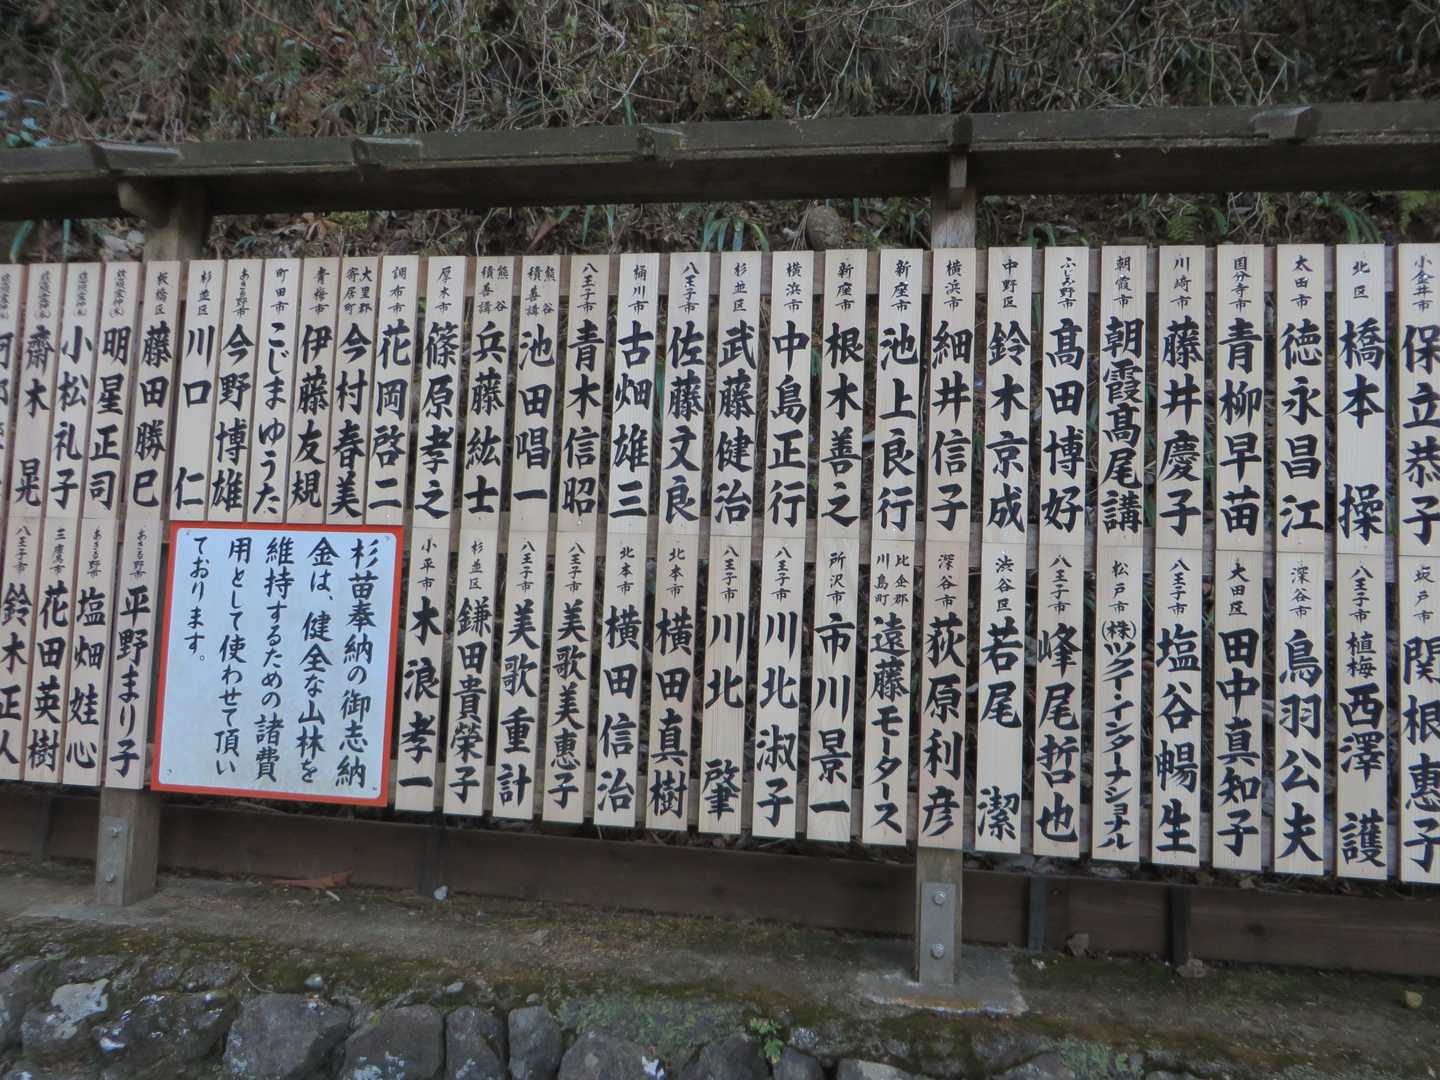 小金井市 保立恭子
北区 橋本 操
太田市 徳永昌江
国分寺市 青柳早苗
川崎市 藤井慶子
朝霞市 朝霞髙尾講
ふじみ野市 髙田博好
中野区 鈴木京成
横浜市 細井信子
新座市 池上良行
新座市 根木善之
横浜市 中島正行
杉並区 武藤健治
八王子市 佐藤文良
桶川市 古畑雄三
八王子市 青木信昭
熊谷積善講 池田唱一
熊谷積善講 兵藤紘士
厚木市 篠原孝之
調布市 花岡啓二
大里郡寄居町 今村春美
青梅市 伊藤友規
町田市 こじまゆうた
あきる野市 今野博雄
杉並区 川口 仁
板橋区 藤田勝巳
明星正司
小松礼子
齋木 晃
坂戸市 関根恵子
八王子市 植梅 西澤 護
深谷市 鳥羽公夫
大田区 田中真知子
八王子市 塩谷暢生
松戸市 (株)ツクイ・インターナショナル
八王子市 峰尾哲也
渋谷区 若尾 潔
深谷市 荻原利彦
比企郡川島町 遠藤モータース
所沢市 市川景一
八王子市 川北淑子
八王子市 川北 肇
北本市 横田真樹
北本市 横田信治
八王子市 美歌美恵子
八王子市 美歌重計
杉並区 鎌田貴榮子
小平市 木浪孝一
杉苗奉納の御志納
金は、健全な山林を
維持するための諸費
用として使わせて頂い
ております。
あきる野市 平野まり子
あきる野市 塩畑娃心
三鷹市 花田英樹
八王子市 鈴木正人